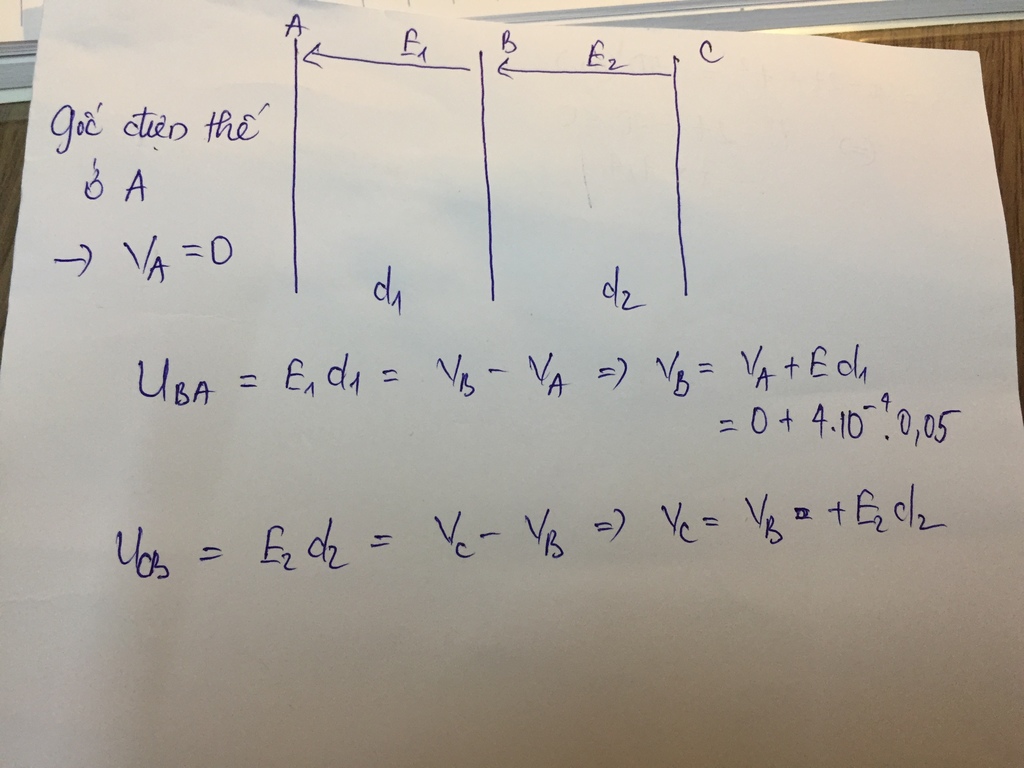 gốc điện thế
ở A
→ V_A = 0
A E₁ B E₂ C
d₁ d₂
U_BA = E₁d₁ = V_B - V_A ⇒ V_B = V_A + Ed₁
= 0 + 4.10⁻⁴.0,05
U_CB = E₂d₂ = V_C - V_B ⇒ V_C = V_B + E₂d₂